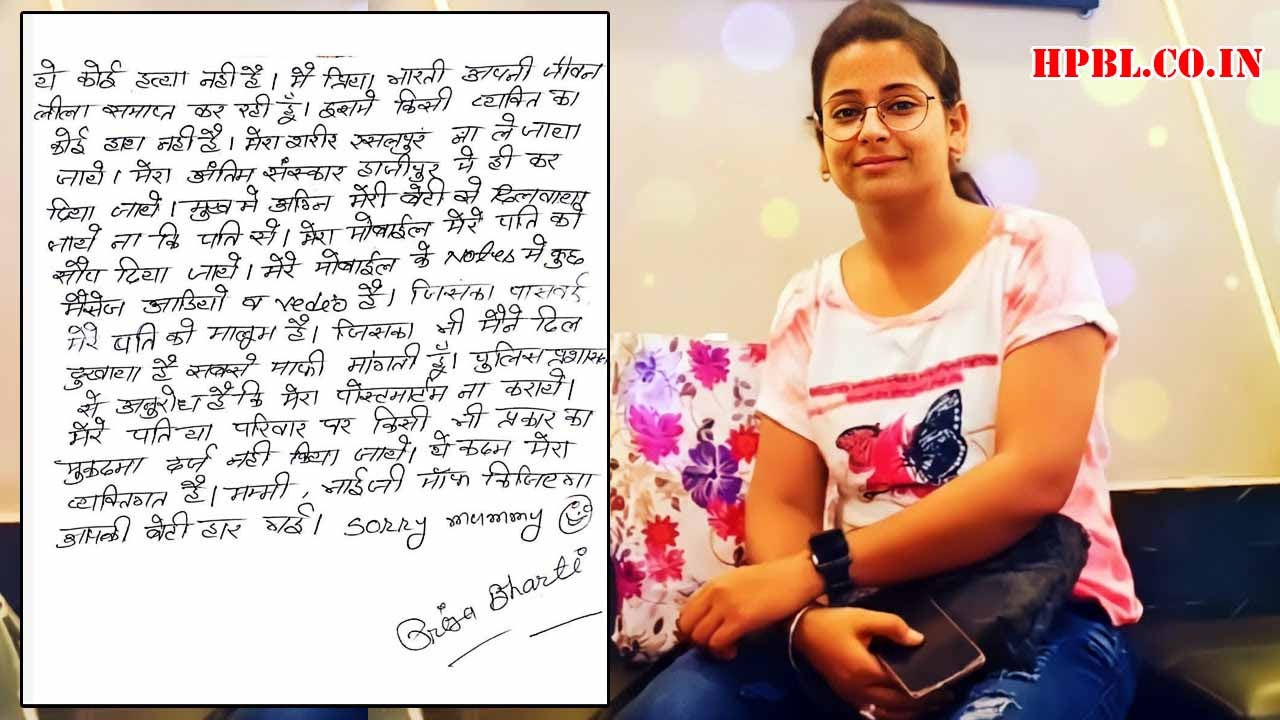 ये कोई हत्या नहीं है। मैं प्रिया भारती अपनी जीवन
लीला समाप्त कर रही हूँ। इसमे किसी व्यक्ति का
कोई हाथ नहीं है। मेरा शरीर रसलपुर ना ले जाया
जाये। मेरा अंतिम संस्कार हाजीपुर मे ही कर
दिया जाये। मुख मे अग्नि मेरी बेटी से दिलवाया
जाये ना कि पति से। मेरा मोबाईल मेरे पति को
सौंप दिया जाये। मेरे मोबाईल के Notes मे कुछ
मैसेज आडियो व vedeo है। जिसका पासवर्ड
मेरे पति को मालूम है। जिसका भी मैने दिल
दुखाया है सबसे माफी मांगती हूँ। पुलिस प्रशासन
से अनुरोध है कि मेरा पोस्टमार्टम ना कराये।
मेरे पति या परिवार पर किसी भी प्रकार का
मुकदमा दर्ज नही किया जाये। ये कदम मेरा
व्यक्तिगत है। मम्मी, भाईजी मॉफ किजिएगा
आपकी बेटी हार गई। sorry mummy
Priya Bharti
HPBL.CO.IN